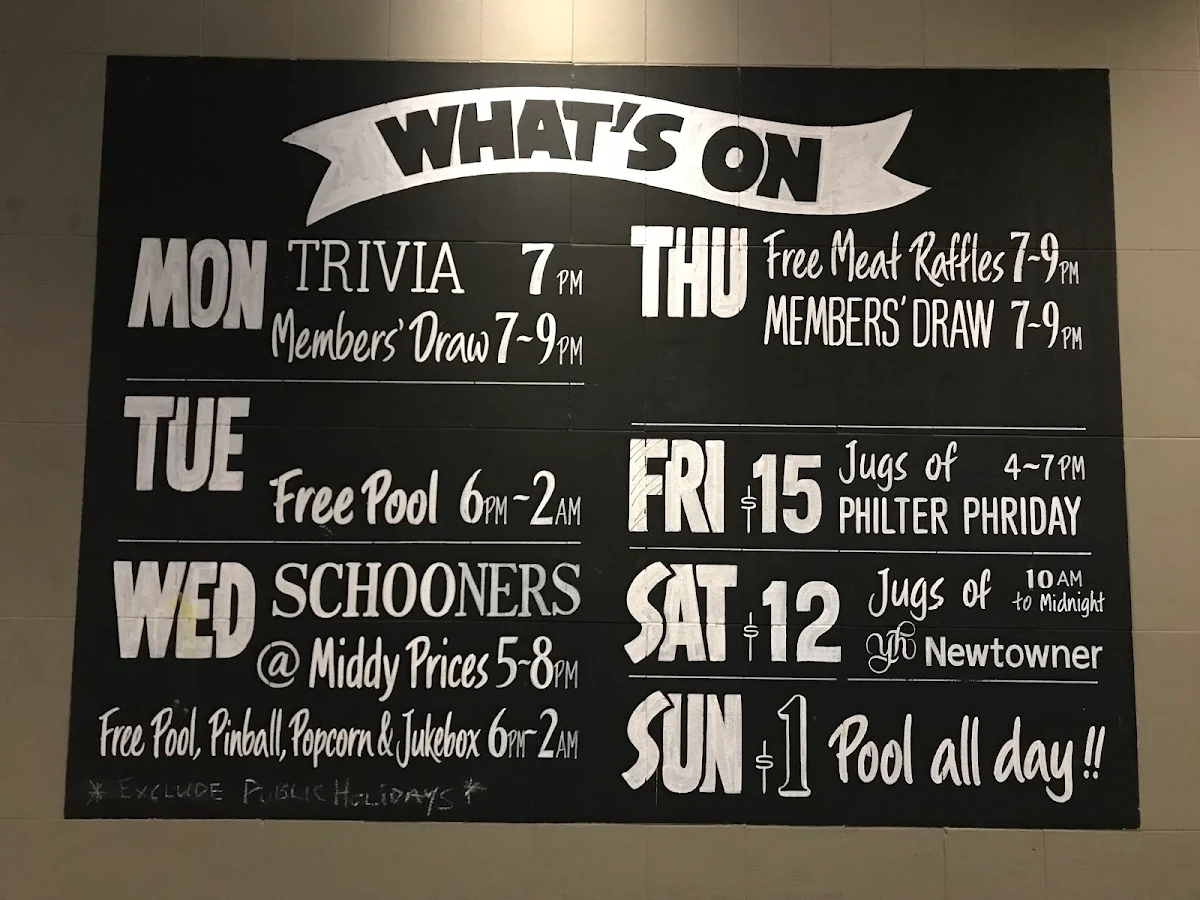 WHAT'S ON
MON TRIVIA 7PM
Members' Draw 7~9PM
TUE
Free Pool 6PM~2AM
WED SCHOONERS
@ Middy Prices 5-8PM
Free Pool, Pinball, Popcorn & Jukebox 6PM~2AM
* EXCLUDE PUBLIC HOLIDAYS *
THU Free Meat Raffles 7-9PM
MEMBERS' DRAW 7-9PM
FRI $15 Jugs of 4~7PM
PHILTER PHRIDAY
SAT $12 Jugs of 10AM
to Midnight
yh Newtowner
SUN $1 Pool all day!!